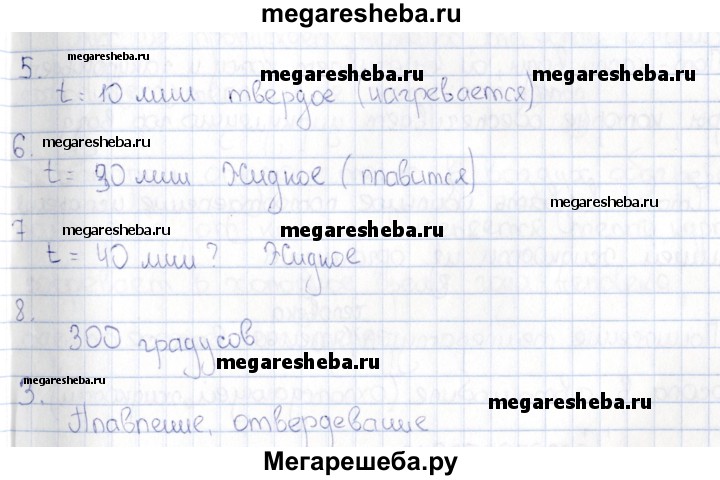 megaresheba.ru
5. megaresheba.ru
t = 10 мин твердое (нагревается)
megaresheba.ru megaresheba.ru
6. megaresheba.ru
t = 30 мин Жидкое (плавится)
megaresheba.ru
7 megaresheba.ru megaresheba.ru
t = 40 мин? Жидкое
8.
300 градусов
megaresheba.ru
megaresheba.ru
3. megaresheba.ru
Плавление, отвердевание
Мегарешеба.ру